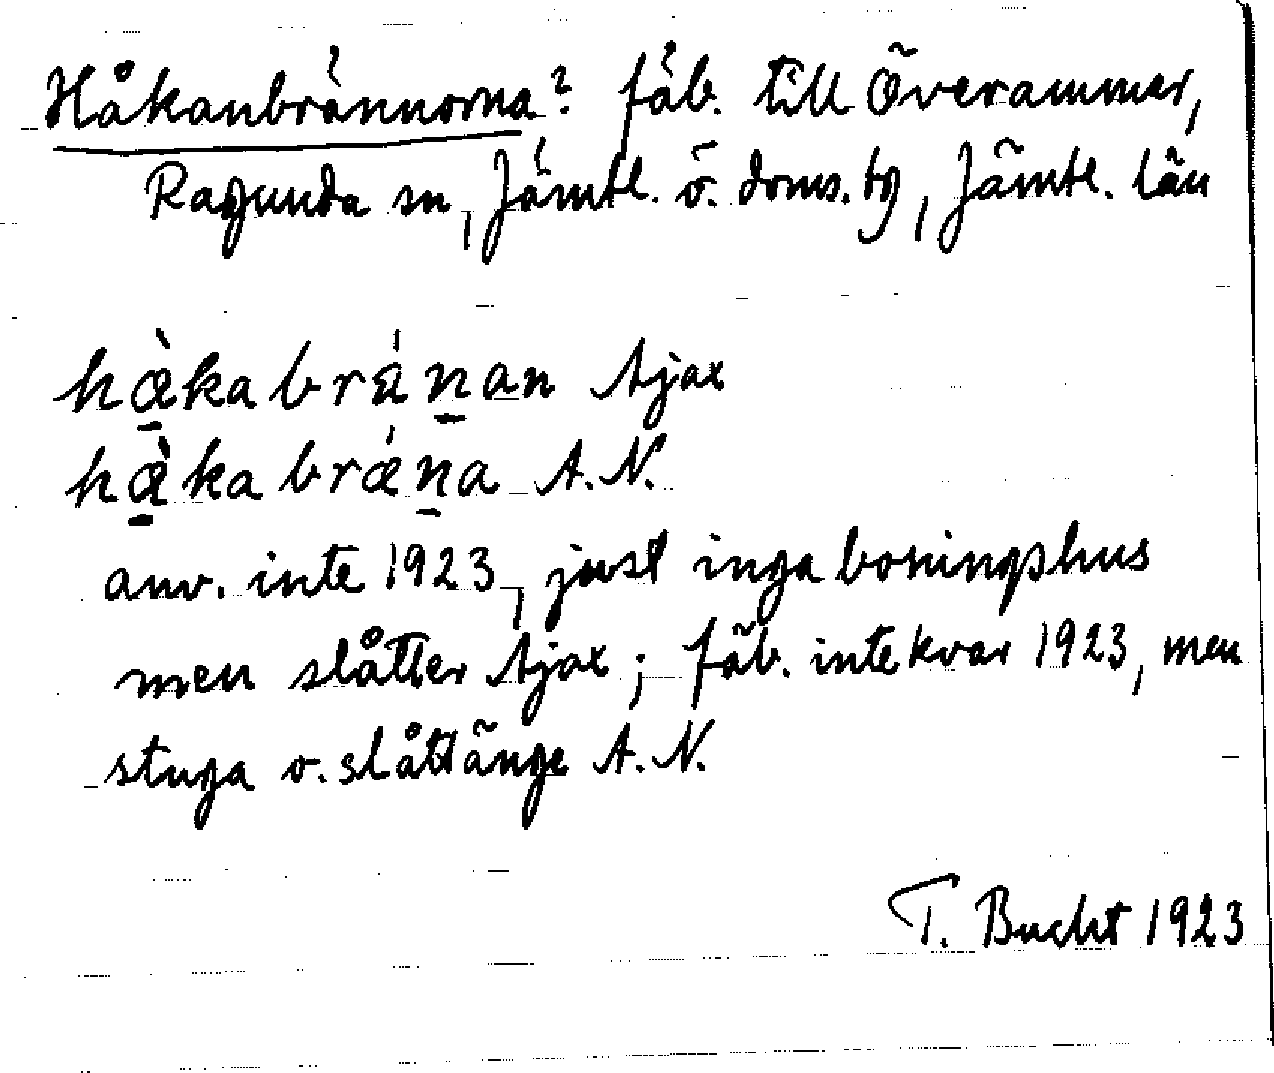 Håkanbrännorna? fäb. till Överammer,
Ragunda sn, Jämtl. ö. doms. tg, Jämtl. län
hæ̠̀kabrán̠an Ajax
hæ̠̀kabrǽn̠a A.N.
anv. inte 1923, just inga boningshus
men slåtter Ajax; fäb. inte kvar 1923, men
stuga o. slåttänge A.N.
T. Bucht 1923